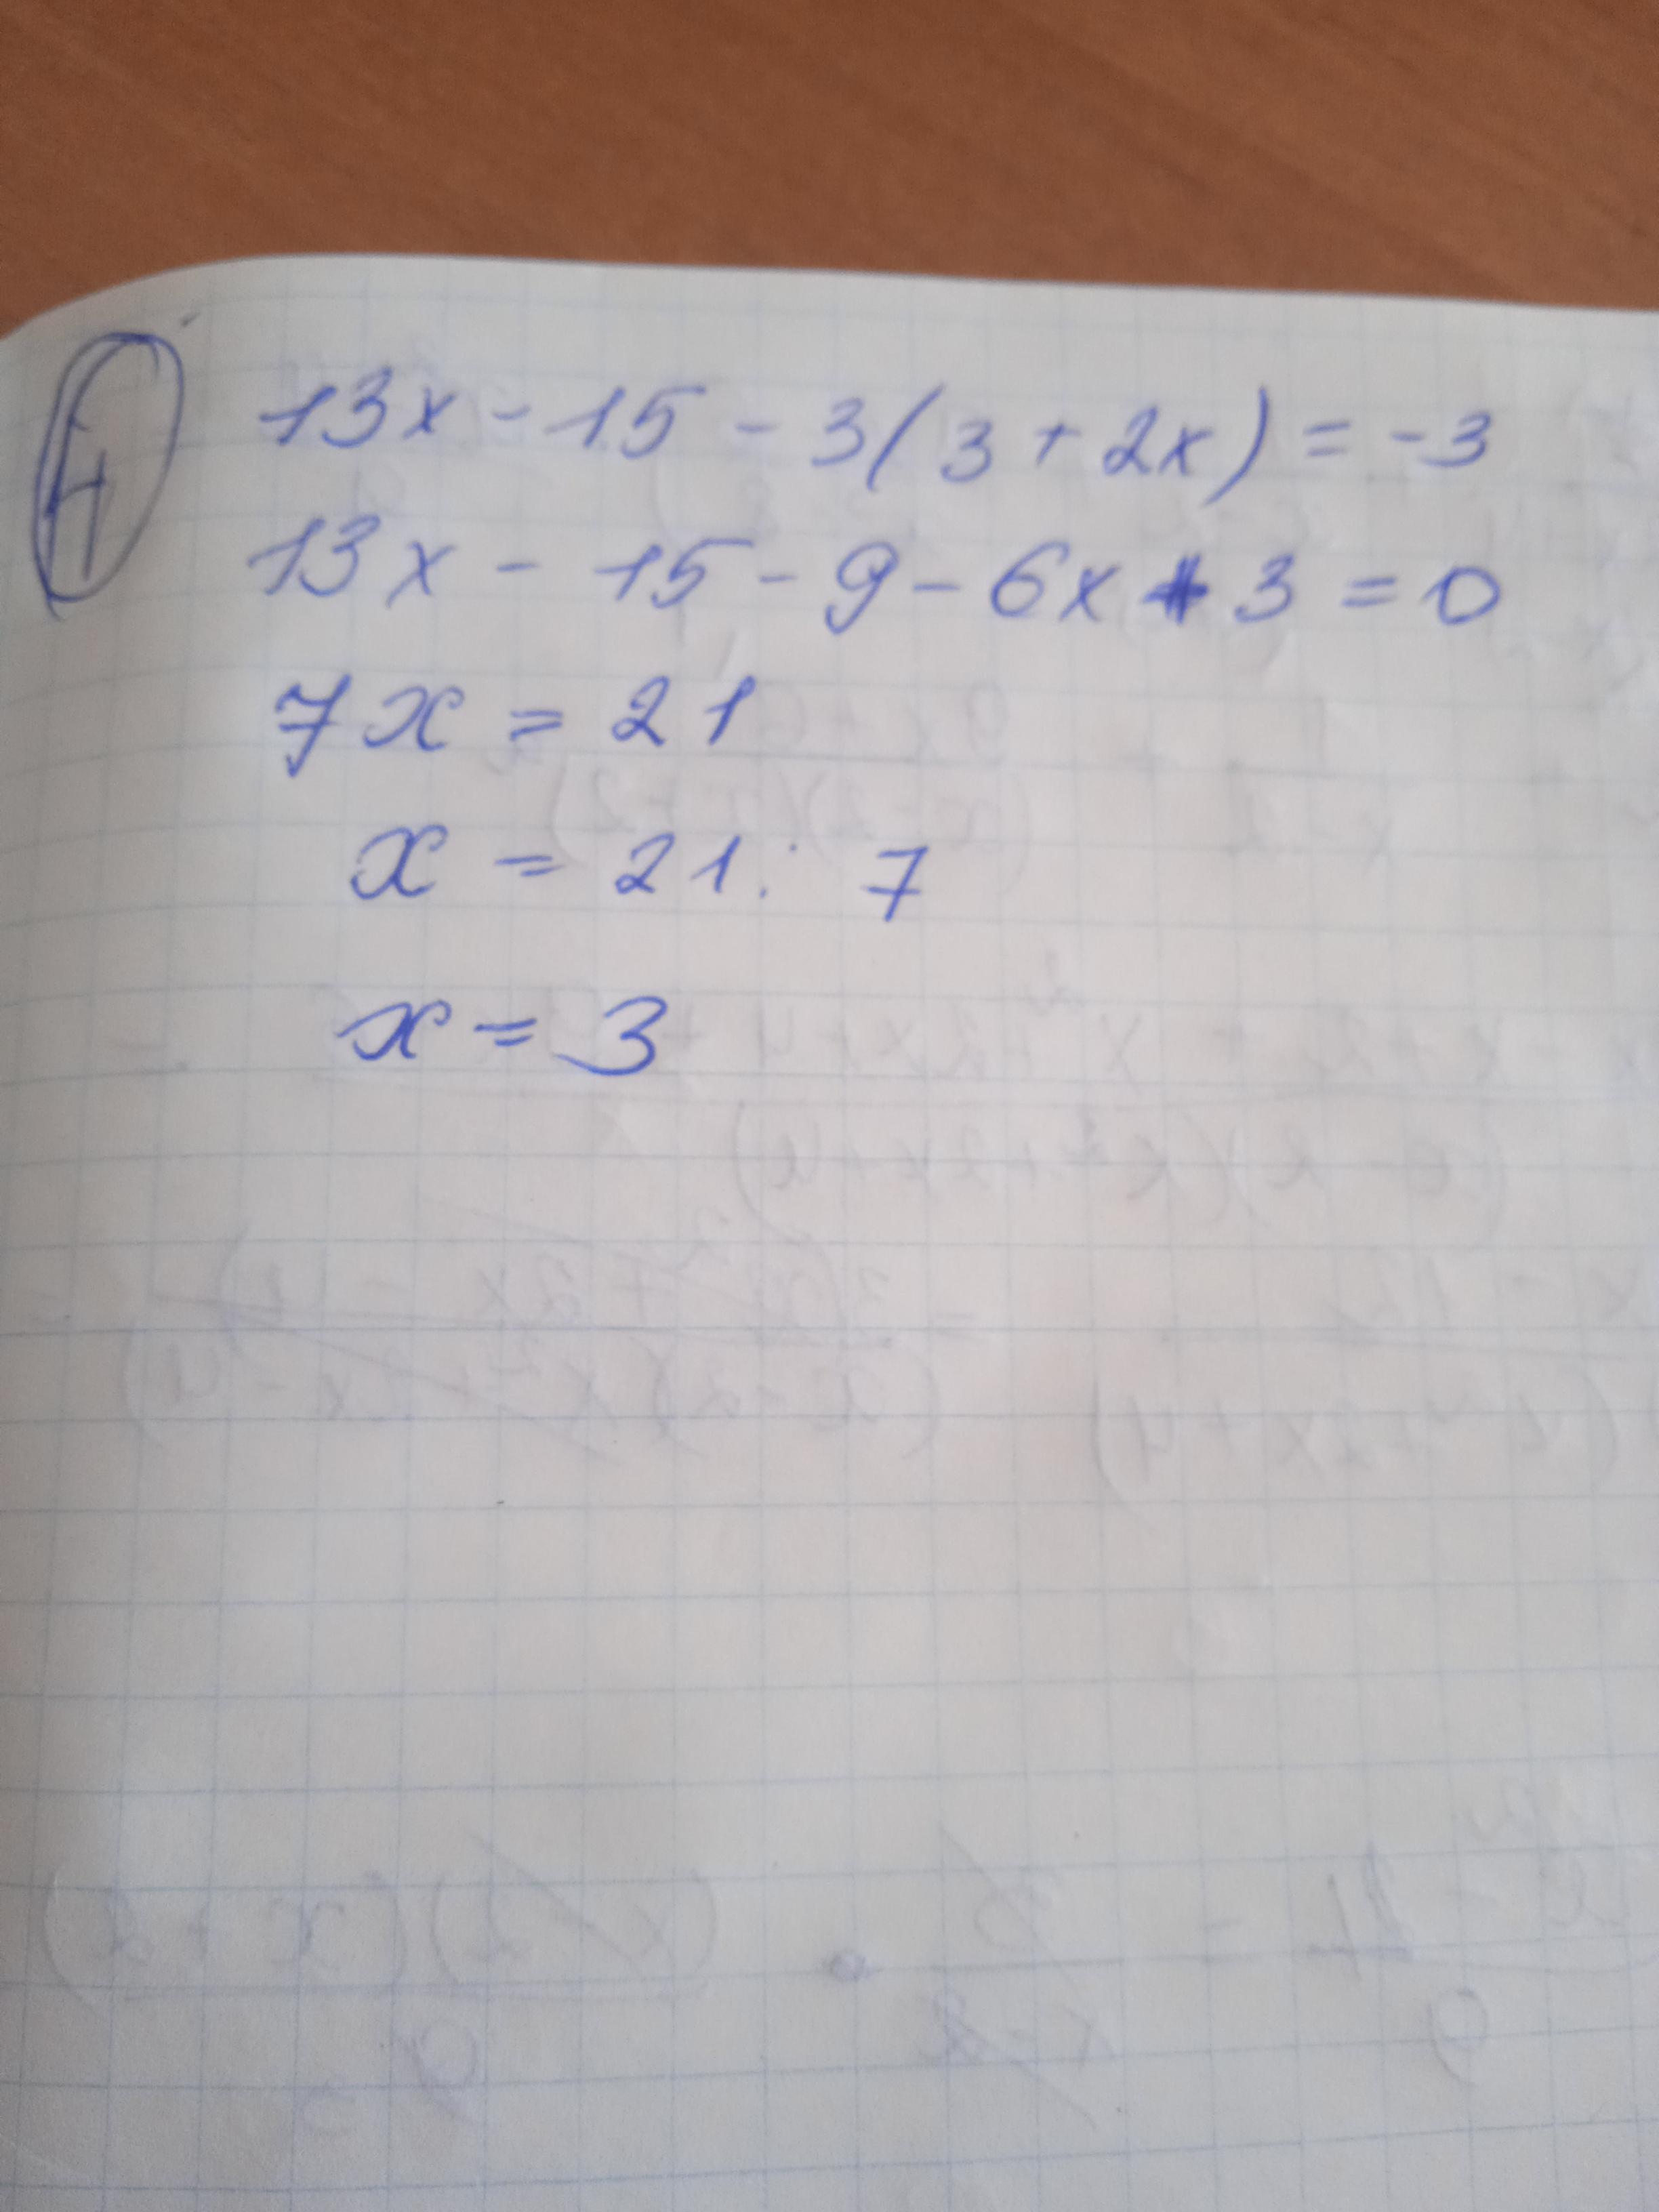 4
13x - 15 - 3(3 + 2x) = -3
13x - 15 - 9 - 6x + 3 = 0
7x = 21
x = 21 : 7
x = 3